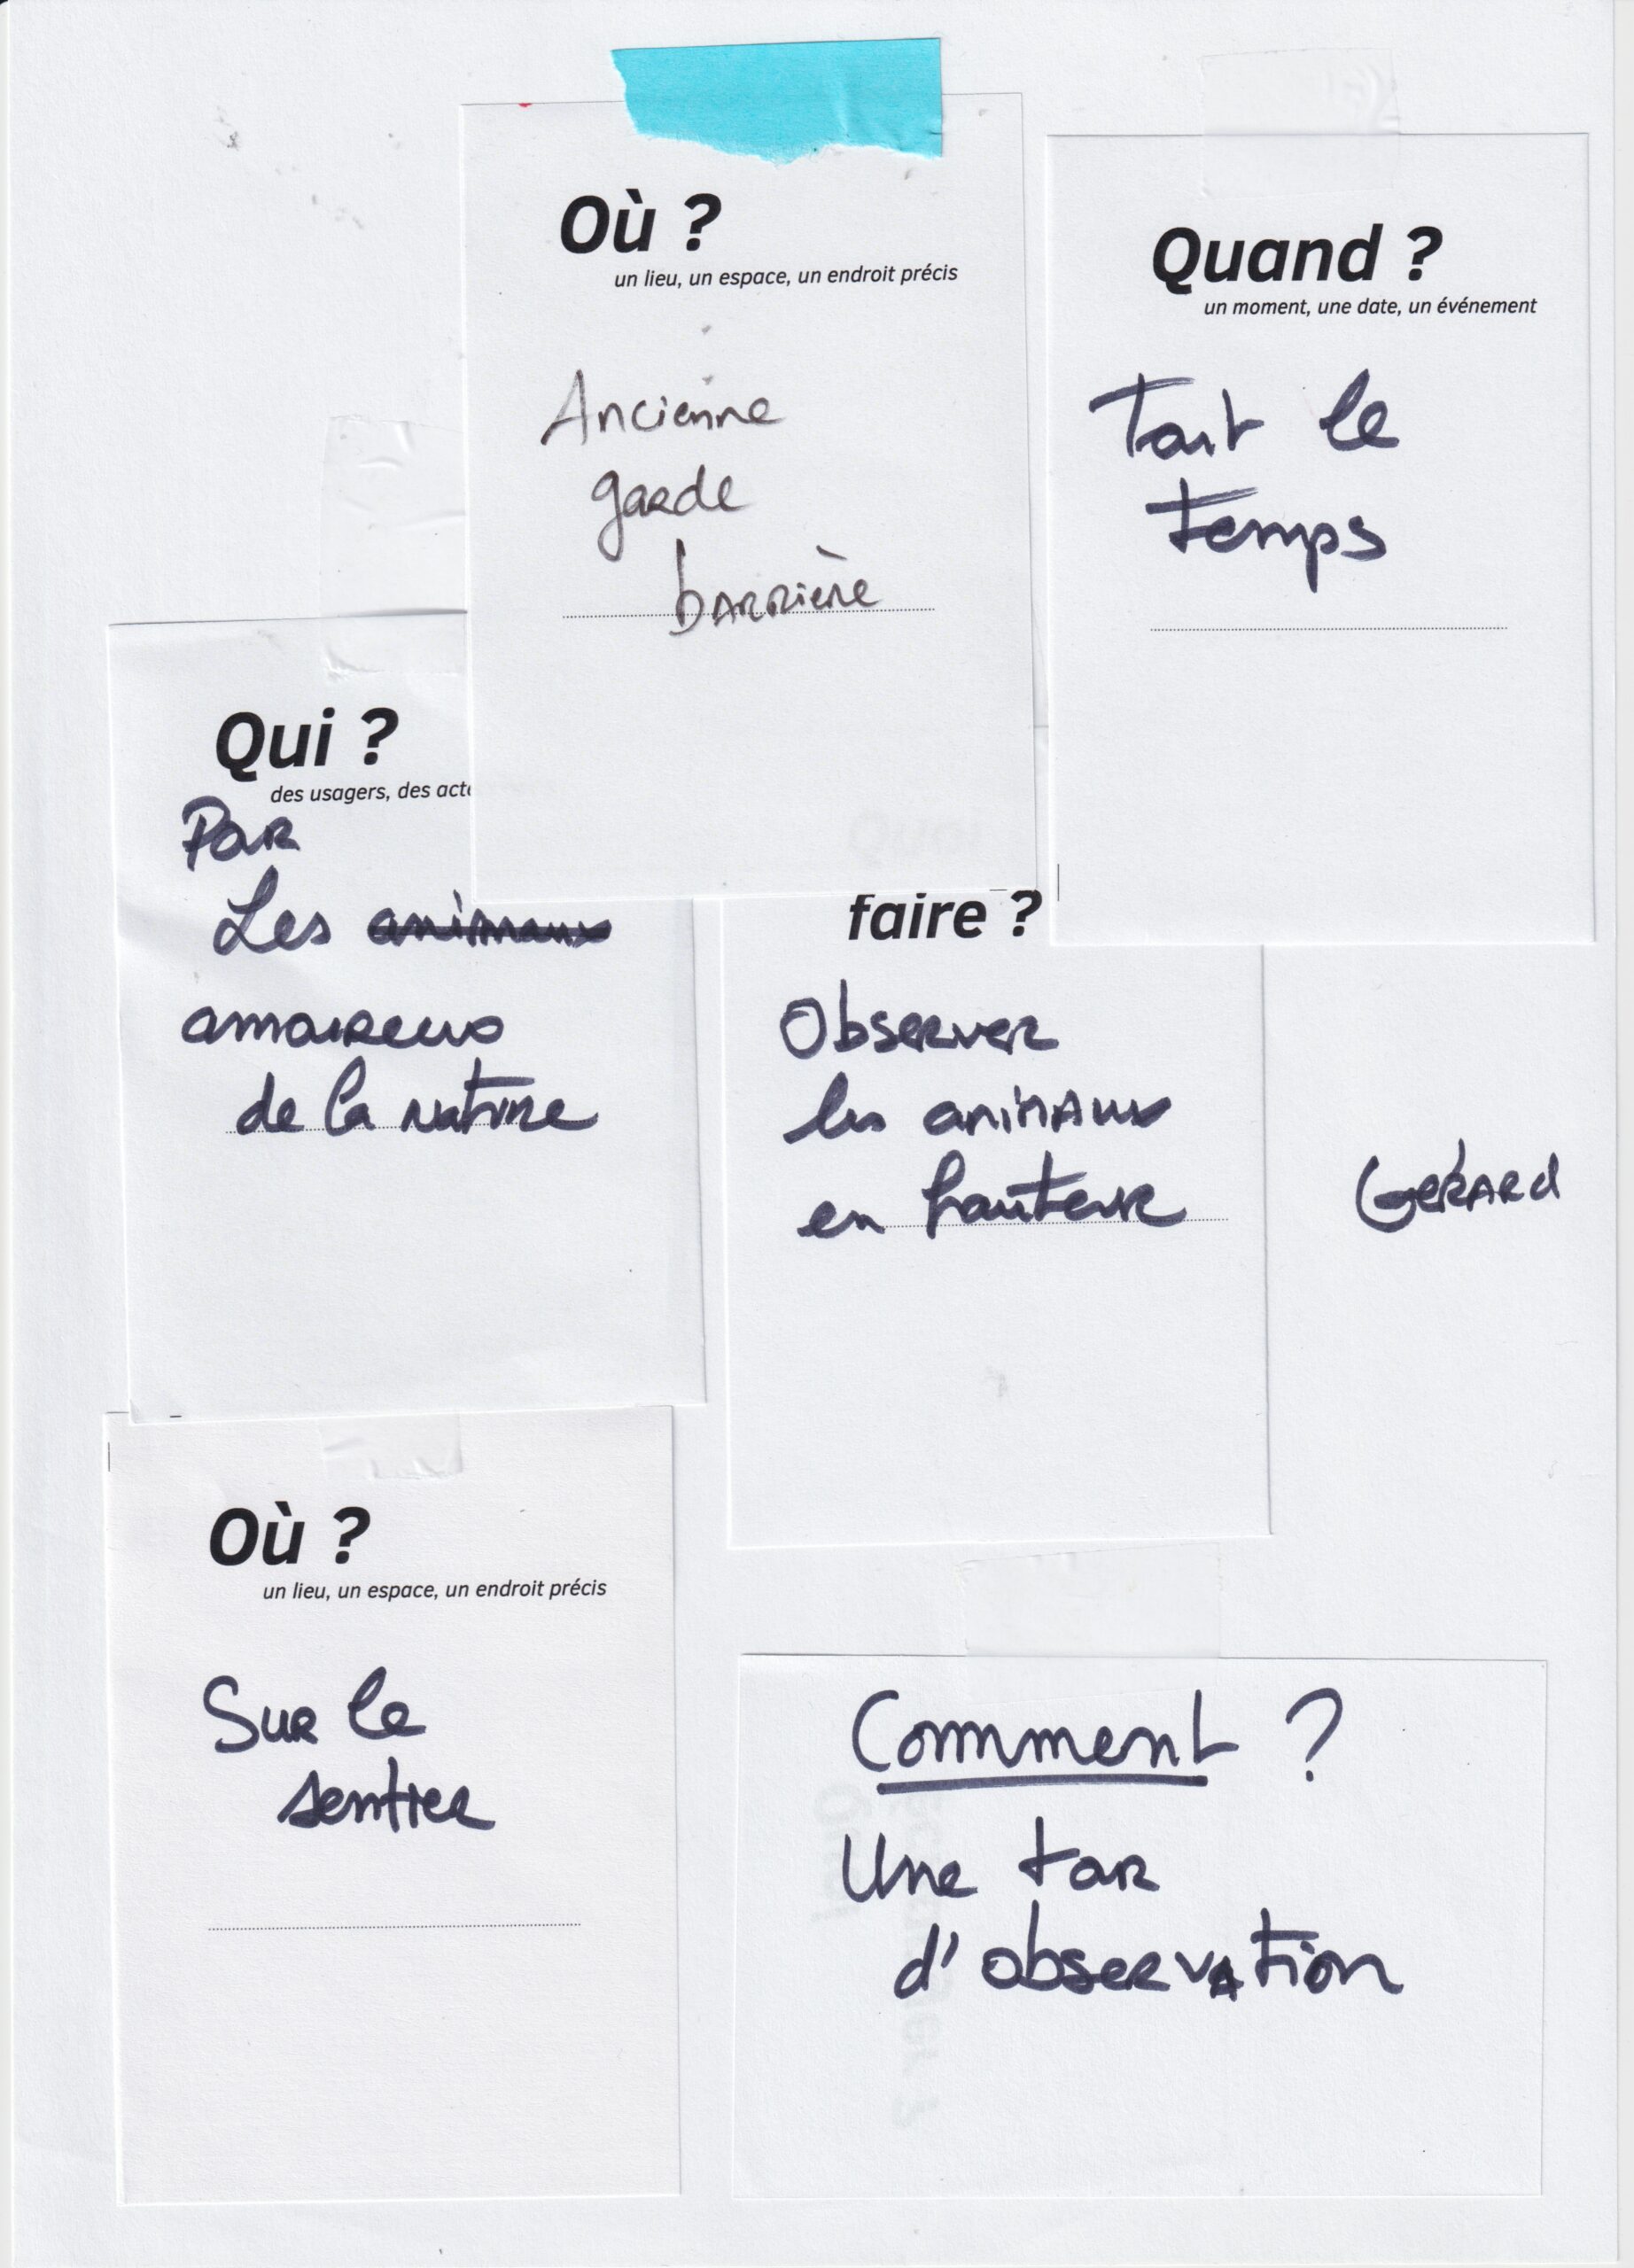 Où ?
un lieu, un espace, un endroit précis
Ancienne
garde
barrière
Quand ?
un moment, une date, un événement
Tout le
temps
Qui ?
des usagers, des act
Par
Les animaux
amoureux
de la nature
faire ?
Observer
les animaux
en hauteur
Gérard
Où ?
un lieu, un espace, un endroit précis
Sur le
sentier
Comment ?
Une tour
d'observation